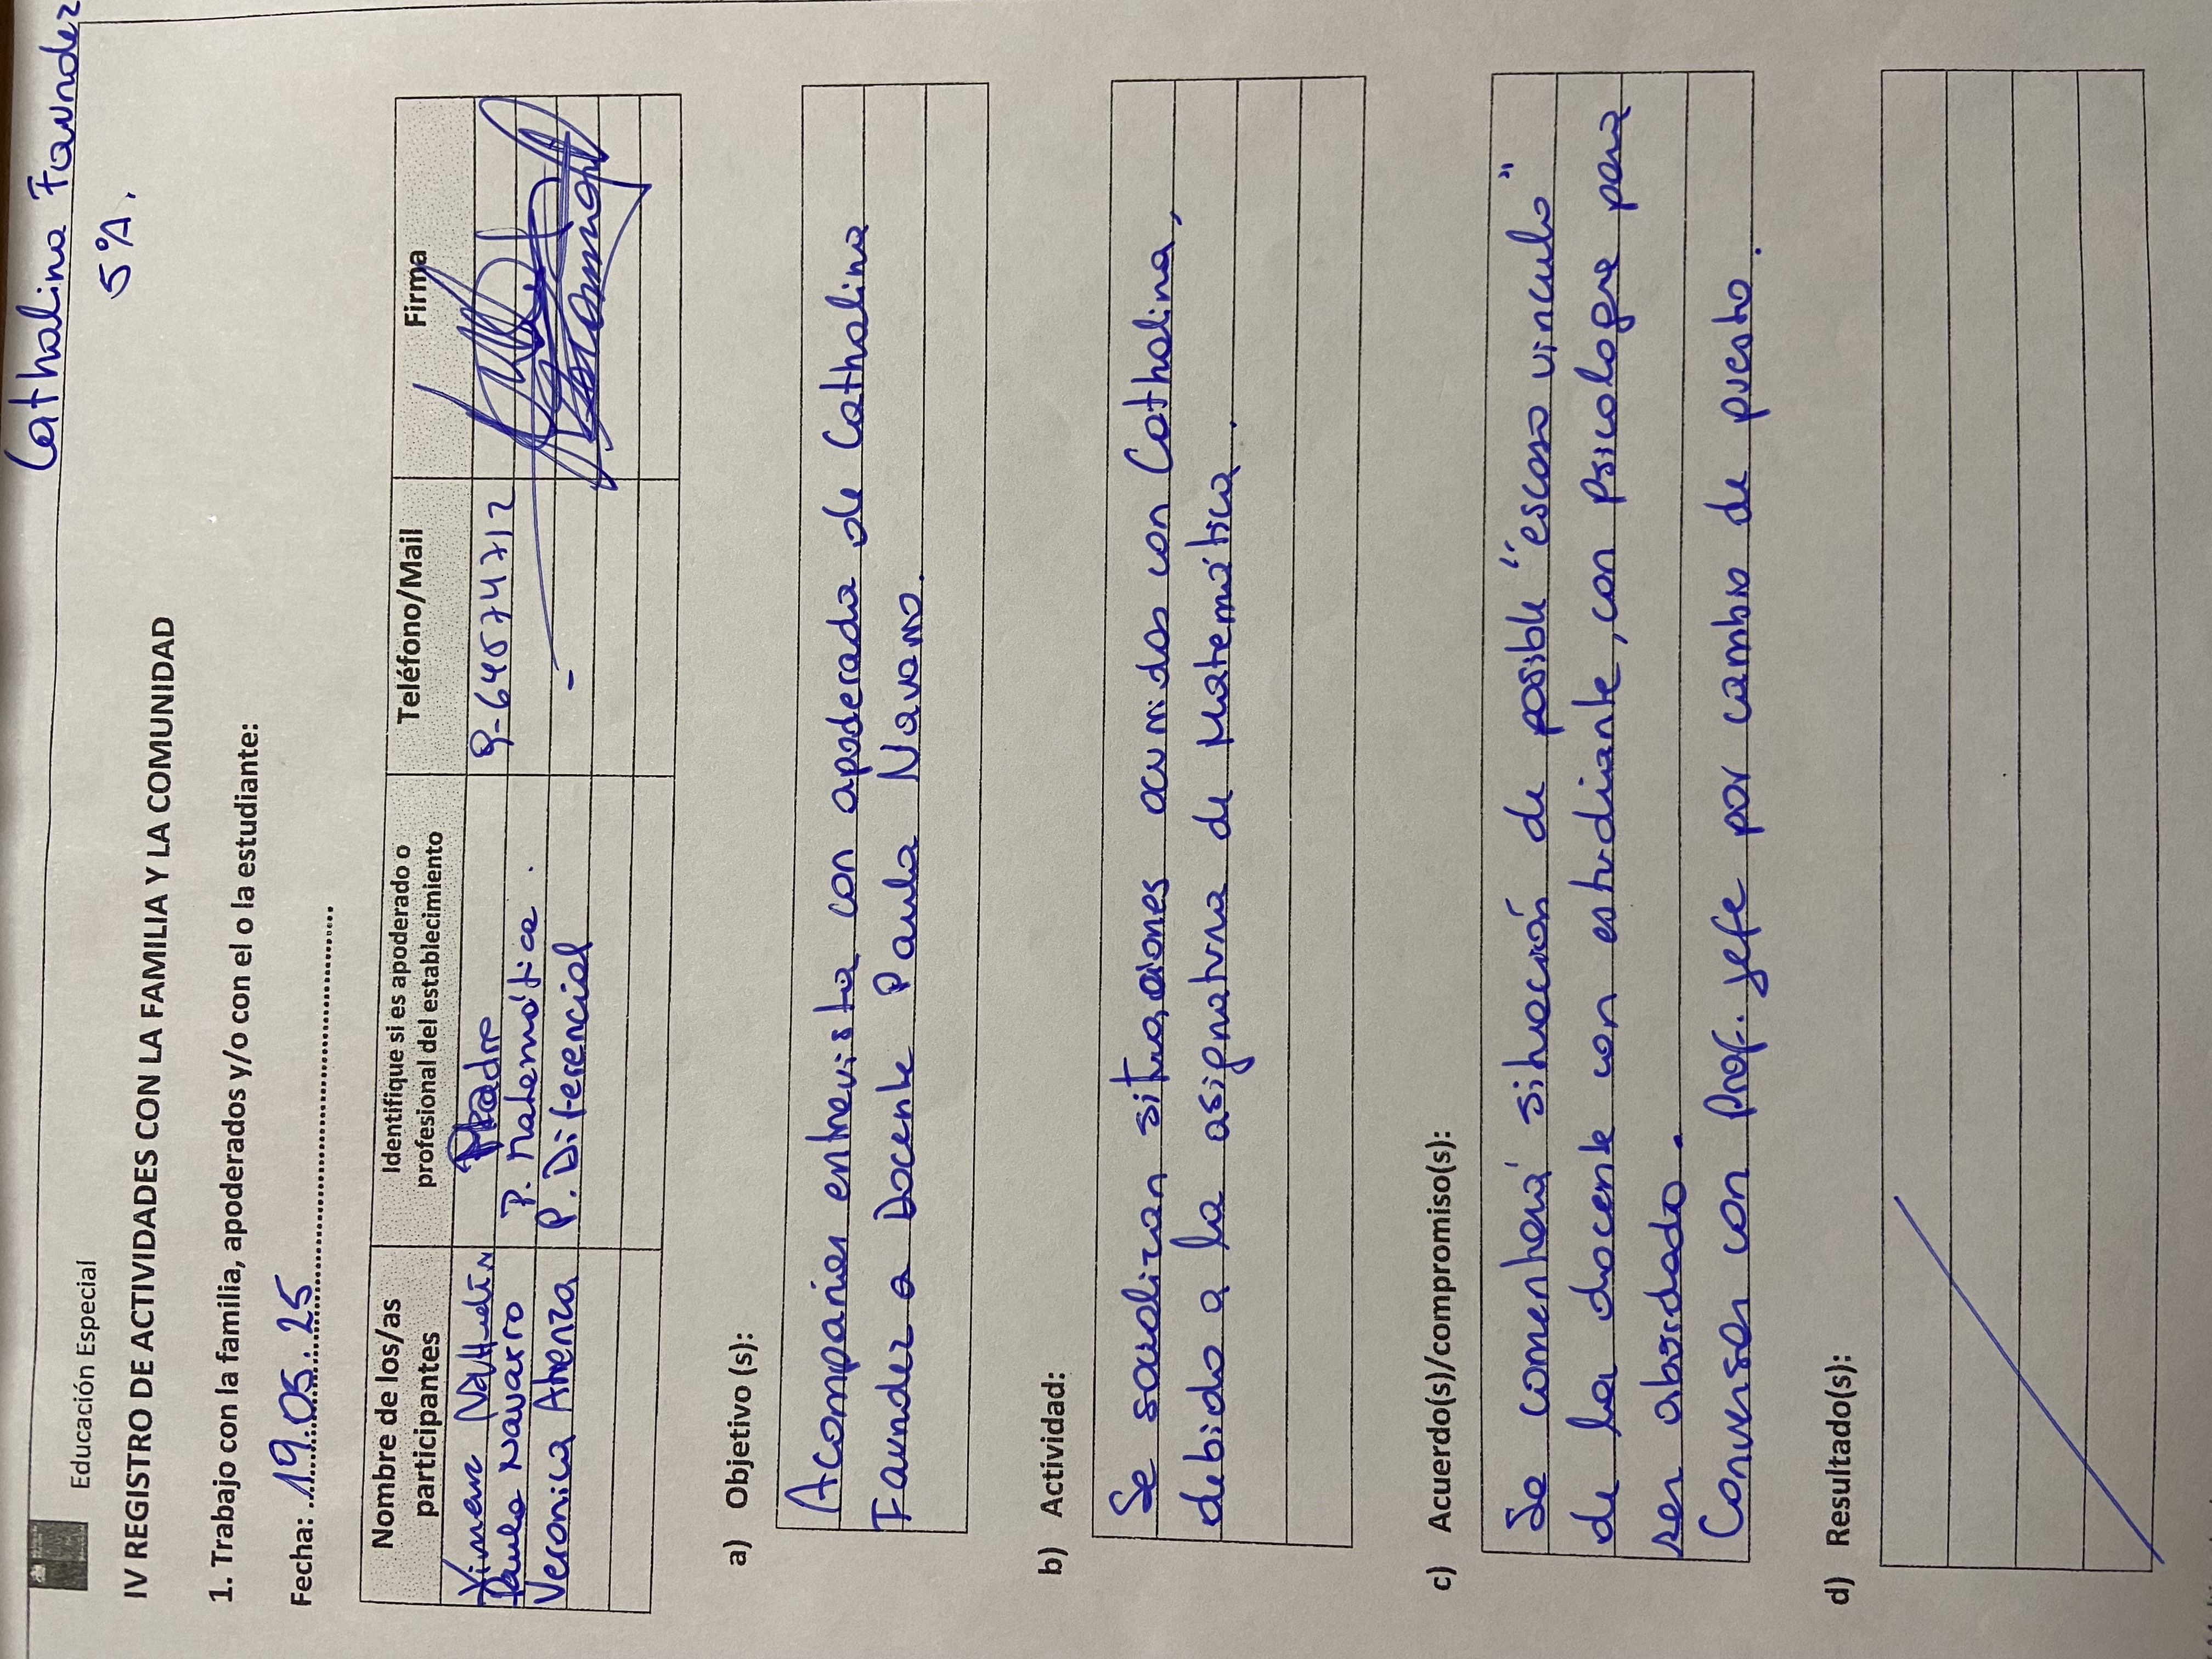 Cathalina Faundez
5°A.
Educación Especial
IV REGISTRO DE ACTIVIDADES CON LA FAMILIA Y LA COMUNIDAD
1. Trabajo con la familia, apoderados y/o con el o la estudiante:
Fecha: 19.05.25
Nombre de los/as participantes
Identifique si es apoderado o profesional del establecimiento
Teléfono/Mail
Firma
9-64574712
Paula Navarro P. Matemática.
Veronica Atenza P. Diferencial -
a) Objetivo (s):
Acompañar entrevista con apoderada de Cathalina
Faundez a Docente Paula Navarro.
b) Actividad:
Se socializan situaciones ocurridas con Cathalina,
debido a la asignatura de Matemática.
c) Acuerdo(s)/compromiso(s):
Se comentará situación de posible "escaso vinculo"
de la docente con estudiante, con psicologue para
ser abordado.
Conversar con Prof. jefe por cambio de puesto.
d) Resultado(s):